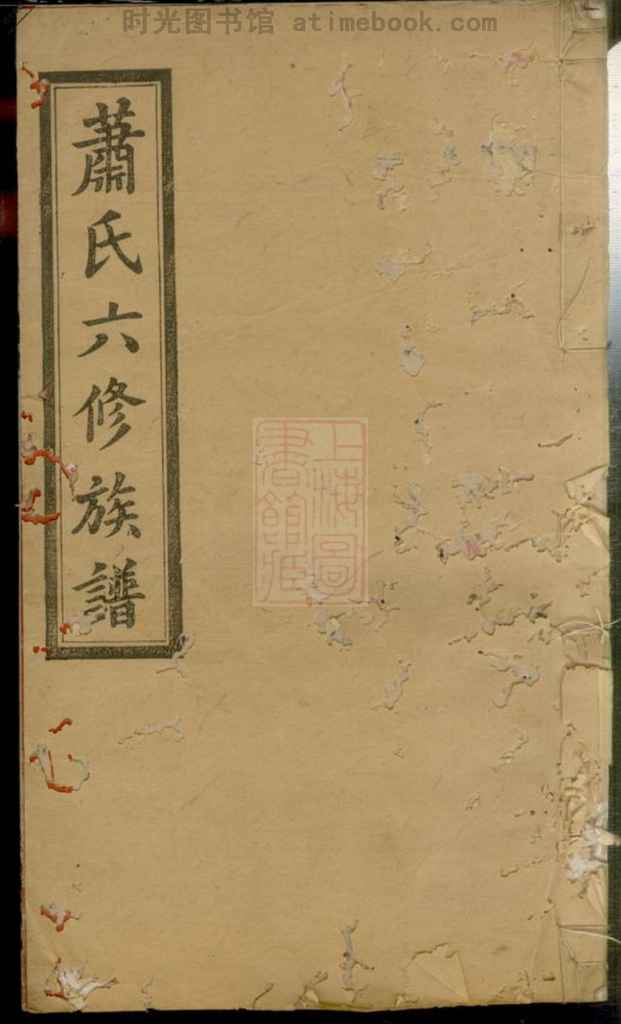 时光图书馆 atimebook.com
蕭氏六修族譜
上海圖
書館藏